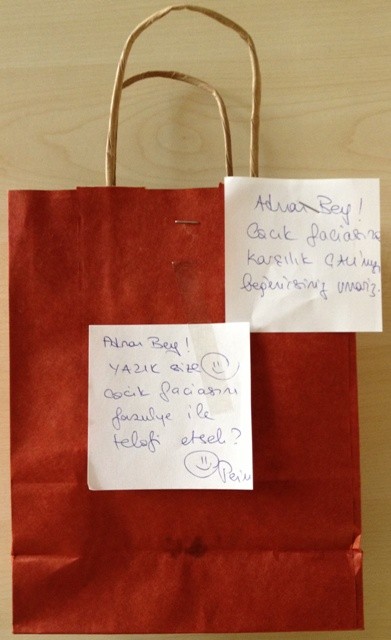 Adnan Bey!
Cacık faciasına
karşılık ÇAL'mızı
beğenirsiniz umarız.
Adnan Bey!
YAZIK size
Cacık faciasını
fasulye ile
telafi etsek?